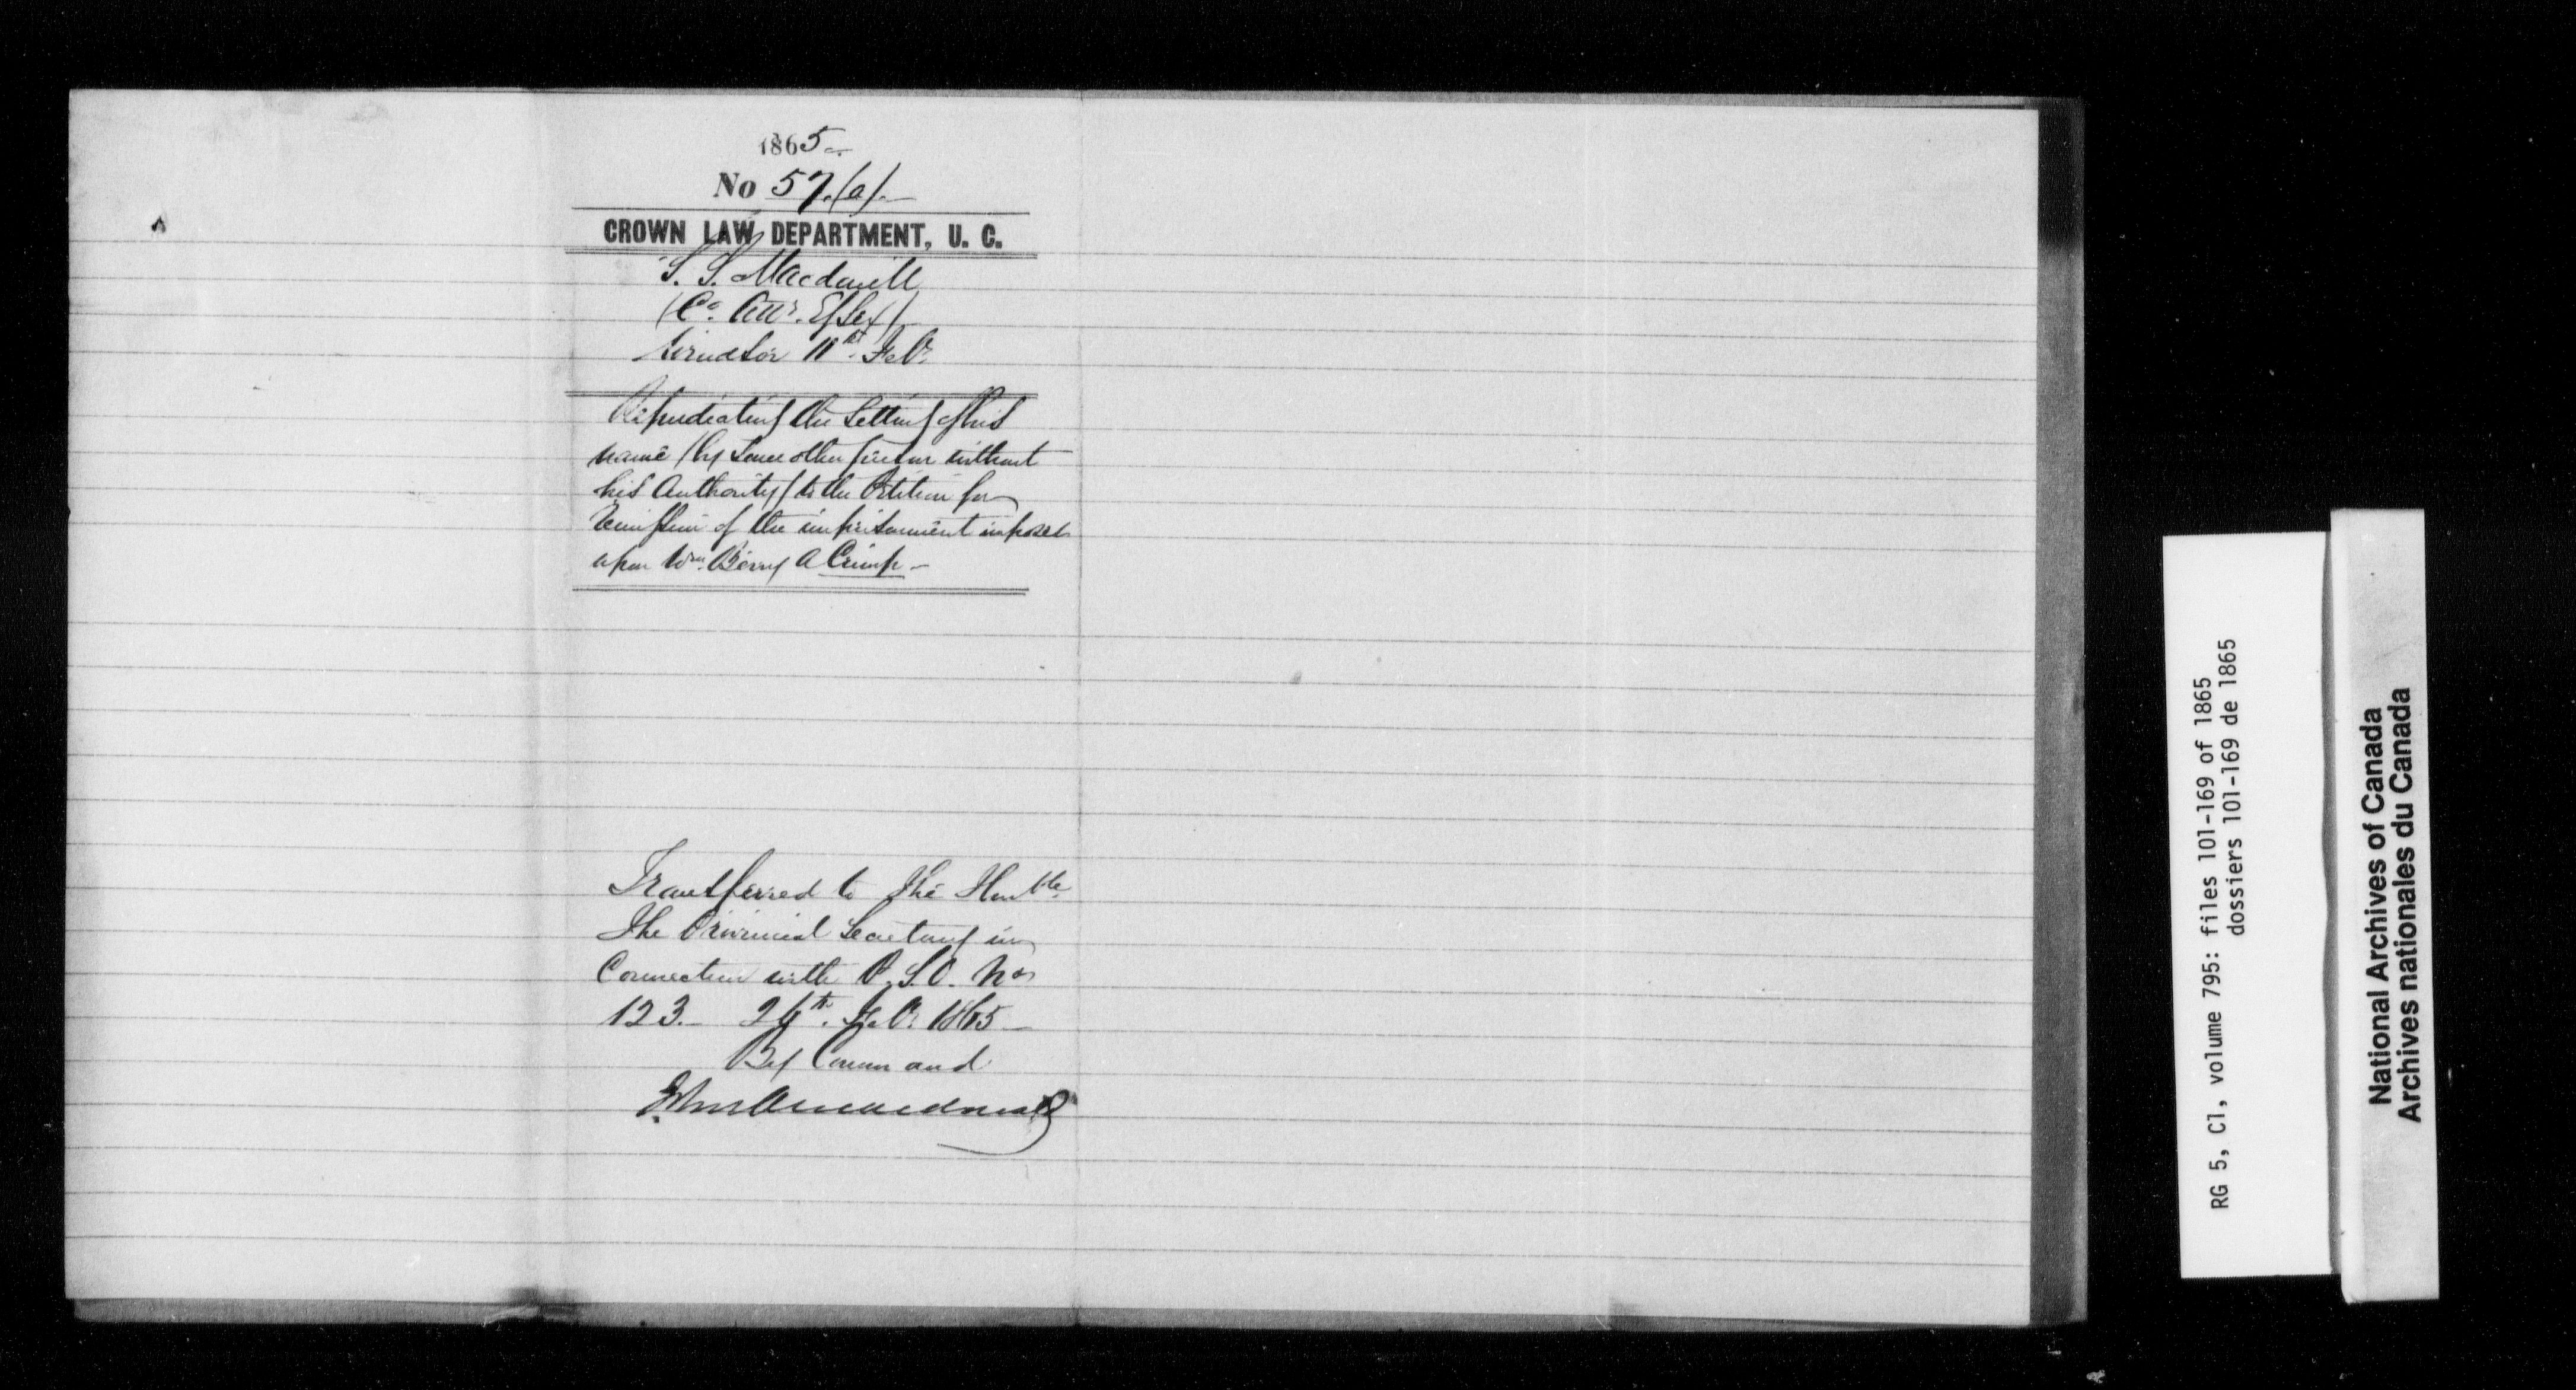 1865
No 57.(a).
CROWN LAW DEPARTMENT, U. C.
S. S. Macdonell
(Co. Atty. Essex)
Windsor 11th. Feby.
Repudiating the Setting of his
name (by Some other person without
his Authority) to the Petition for
Remission of the imprisonment imposed
upon Wm. Berry A Crimp -
Transferred to The Honble.
The Provincial Secretary in
Connection with P.S.O. No
123. Feby. 1865
By Command
John A Macdonald
RG 5, C1, volume 795: files 101-169 of 1865
dossiers 101-169 de 1865
National Archives of Canada
Archives nationales du Canada